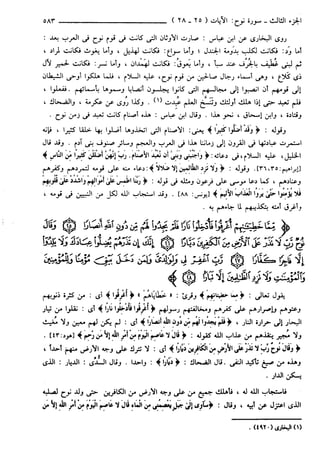 الجزء الثالث ـ سورة نوح: الآيات ( ٢٥ ـ ٢٨ ) ٥٨٣
روى البخاري عن ابن عباس : صارت الأوثان التي كانت في قوم نوح في العرب بعد :
أما ودّ: فكانت لكلب بدومة الجندل ؛ وأما سواع: فكانت لهذيل ، وأما يغوث فكانت لمراد ،
ثم لبني غُطيف بالجُرف عند سبأ ، وأما يعوق: فكانت لهمدان ، وأما نسر: فكانت لحمير لآل
ذي كلاع ، وهي أسماء رجال صالحين من قوم نوح، عليه السلام ، فلما هلكوا أوحى الشيطان
إلى قومهم أن انصبوا إلى مجالسهم التي كانوا يجلسون أنصابا وسموها بأسمائهم . ففعلوا ،
فلم تعبد حتى إذا هلك أولئك وتنسَّخ العلم عُبدت (١) . وكذا روي عن عكرمة ، والضحاك ،
وقتادة ، وابن إسحاق ، نحو هذا . وقال ابن عباس : هذه أصنام كانت تعبد في زمن نوح .
وقوله : ﴿ وقد أضلوا كثيرا ﴾ يعني: الأصنام التي اتخذوها أضلوا بها خلقا كثيرا ، فإنه
استمرت عبادتها في القرون إلى زماننا هذا في العرب والعجم وسائر صنوف بني آدم . وقد قال
الخليل، عليه السلام، في دعائه: ﴿ واجنبني وبني أن نعبد الأصنام. رب إنهن أضللن كثيرا من الناس ﴾
[إبراهيم:٣٥، ٣٦]. وقوله : ﴿ ولا تزد الظالمين إلا ضلالا ﴾ : دعاء منه على قومه لتمردهم وكفرهم
وعنادهم ، كما دعا موسى على فرعون وملئه في قوله : ﴿ ربنا اطمس على أموالهم واشدد على قلوبهم
فلا يؤمنوا حتى يروا العذاب الأليم ﴾ [يونس: ٨٨] . وقد استجاب الله لكل من النبيين في قومه ،
وأغرق أمته بتكذيبهم لما جاءهم به .
﴿ مما خطيئاتهم أغرقوا فأدخلوا نارا فلم يجدوا لهم من دون الله أنصارا
وقال نوح رب لا تذر على الأرض من الكافرين ديارا إنك إن تذرهم يضلوا عبادك ولا يلدوا
إلا فاجرا كفارا رب اغفر لي ولوالدي ولمن دخل بيتي مؤمنا وللمؤمنين
والمؤمنات ولا تزد الظالمين إلا تبارا ﴾
يقول تعالى : ﴿ مما خطيئاتهم ﴾ وقرئ : « خطاياهم » ﴿ أغرقوا ﴾ أي : من كثرة ذنوبهم
وعتوهم وإصرارهم على كفرهم ومخالفتهم رسولهم ﴿ أغرقوا فأدخلوا نارا ﴾ أي : نقلوا من تيار
البحار إلى حرارة النار ، ﴿ فلم يجدوا لهم من دون الله أنصارا ﴾ أي : لم يكن لهم معين ولا مُغيث
ولا مُجير ينقذهم من عذاب الله كقوله : ﴿ قال لا عاصم اليوم من أمر الله إلا من رحم ﴾ [هود: ٤٣] .
﴿ وقال نوح رب لا تذر على الأرض من الكافرين ديارا ﴾ أي : لا تترك على وجه الأرض منهم أحدا ،
وهذه من صيغ تأكيد النفي . قال الضحاك : ﴿ ديارا ﴾ : واحدا . وقال السُّدّي : الديار : الذي
يسكن الدار .
فاستجاب الله له ، فأهلك جميع من على وجه الأرض من الكافرين حتى ولد نوح لصلبه
الذي اعتزل عن أبيه ، وقال : ﴿ سآوي إلى جبل يعصمني من الماء قال لا عاصم اليوم من أمر الله إلا من
(١) البخاري (٤٩٢٠) .